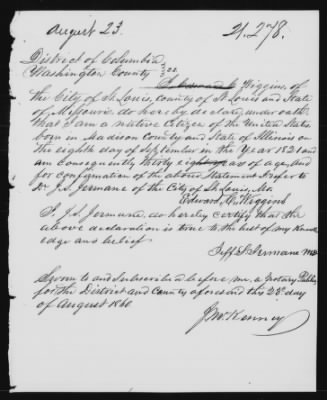 August 23.
21.278.
District of Columbia
Washington County } ss.
I Edward Wiggins of
the City of St Louis, county of St Louis and State
of Missouri do hereby declare under oath
that I am a native citizen of the United States
born in Madison County and State of Illinois on
the eighth day of September in the Year 1821 and
am consequently thirty eight years of age, and
for confirmation of the above Statement I refer to
Dr J.S. Jermane of the City of St Louis, Mo.
Edward Wiggins
I, J.S. Jermane, do hereby certify that the
above declaration is true to the best of my knowl
edge and belief
Jeff. S. Jermane MD
Sworn to and subscribed before me, a Notary Public
for the District and County aforesaid this 23d day
of August 1860
J McKenney